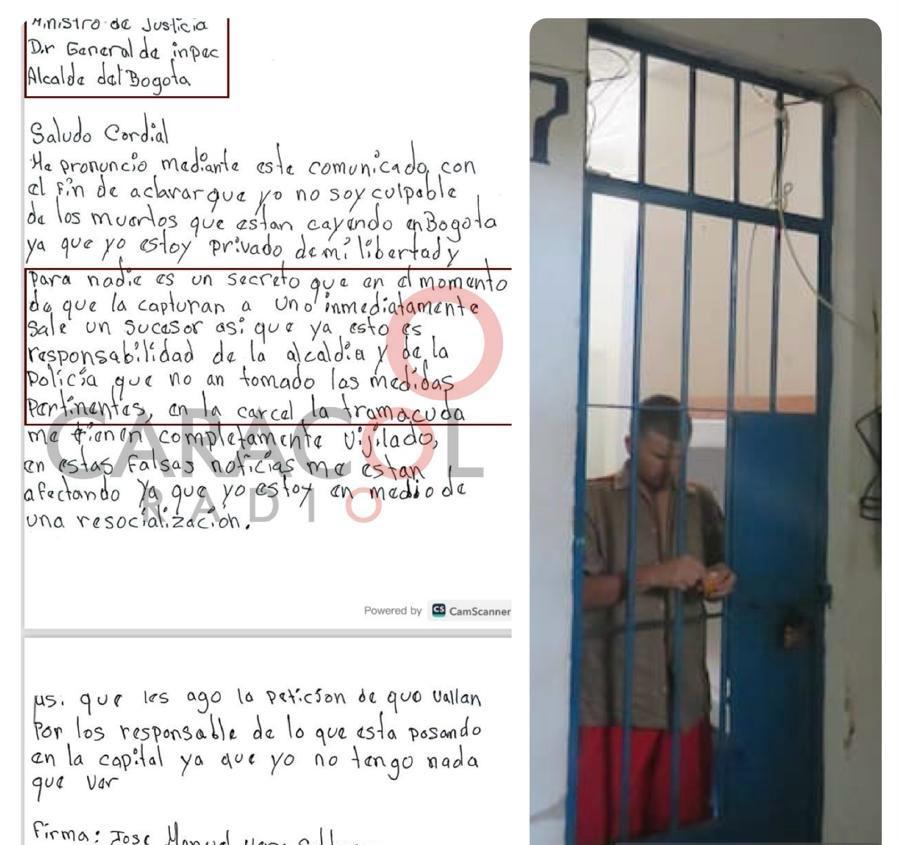 Ministro de Justicia
Dr General de inpec
Alcalde del Bogota
Saludo Cordial
Me pronuncio mediante este comunicado, con
el fin de aclarar que yo no soy culpable
de los muertos que estan cayendo en Bogota
ya que yo estoy privado de mi libertad y
para nadie es un secreto que en el momento
de que la capturan a uno inmediatamente
sale un sucesor asi que ya esto es
responsabilidad de la alcaldia y de la
Policia que no an tomado las medidas
Pertinentes, en la carcel la tramacuda
me tienen completamente vijilado,
en estas falsas noticias me estan
afectando ya que yo estoy en medio de
una resocialización.
CARACOL
RADIO
Powered by CS CamScanner
us. que les ago la peticion de que vallan
Por los responsable de lo que esta pasando
en la capital ya que yo no tengo nada
que ver
Firma: Jose Manuel
7